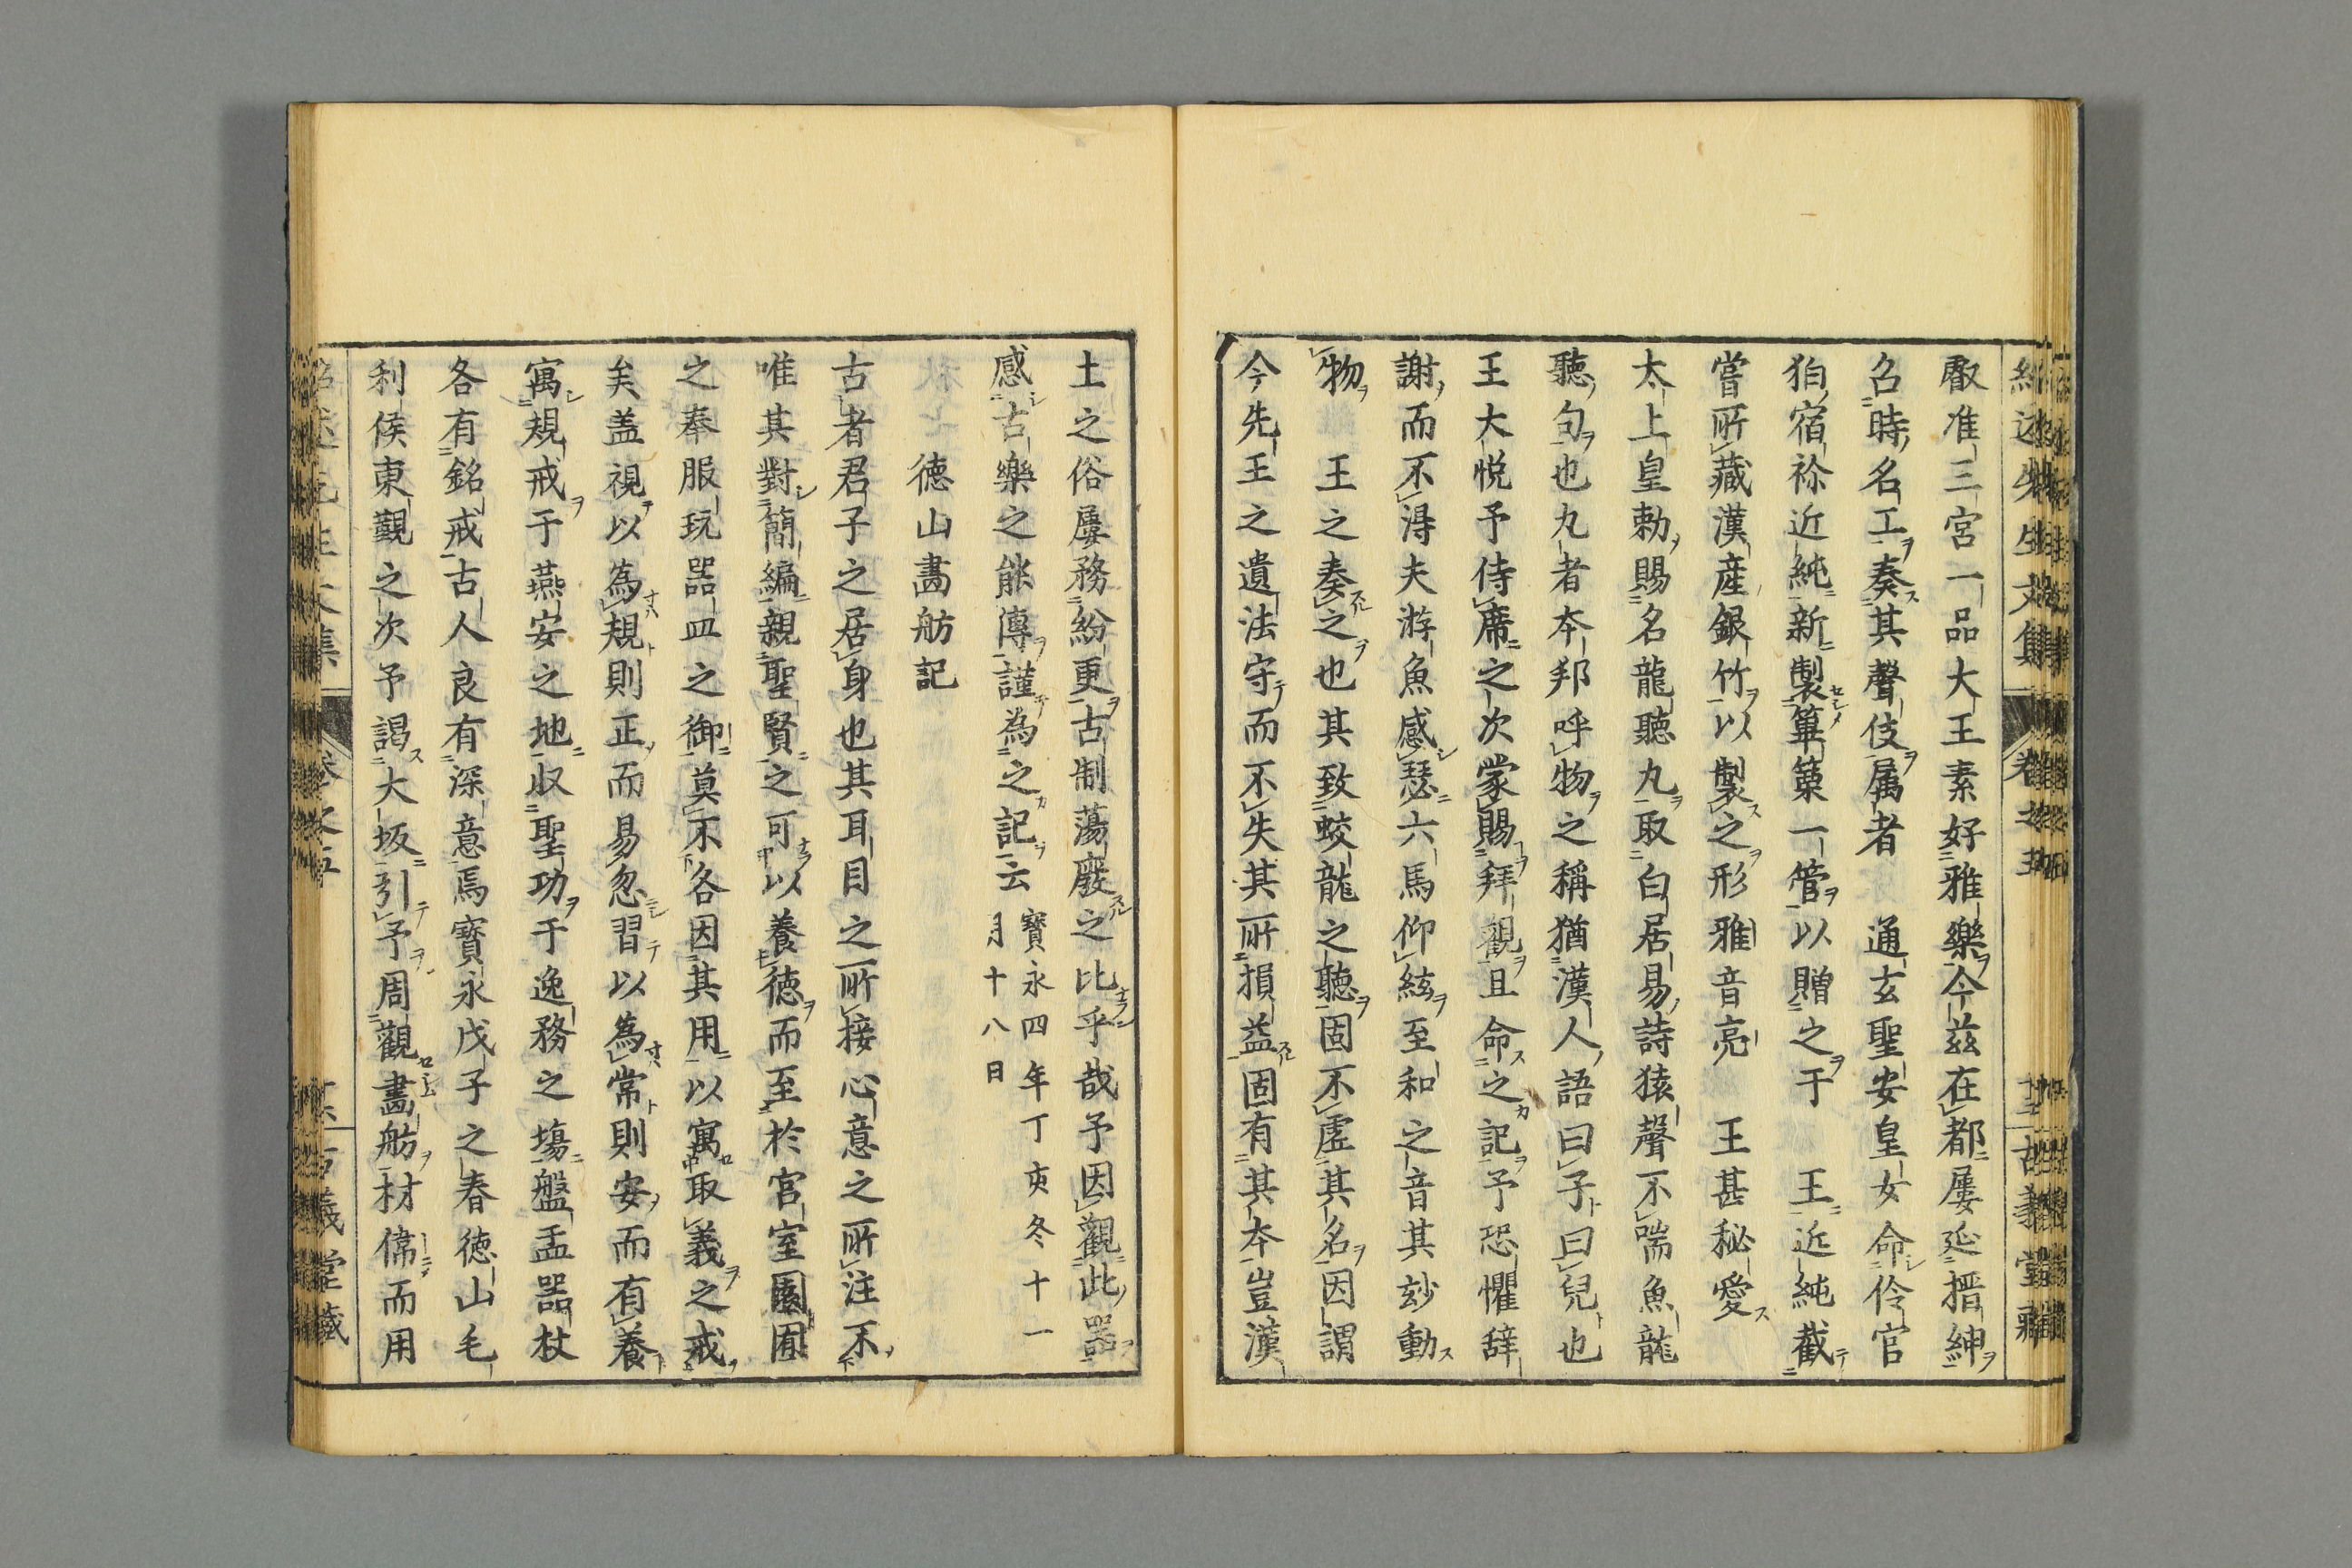 紹述先生文集 卷之五 十二 古義堂藏
叡准三宮一品大王素好雅樂今茲在都屢延搢紳
名時名工奏其聲伎属者 通玄聖安皇女命伶官
狛宿祢近純新製篳篥一管以贈之于 王近純截
嘗所藏漢産銀竹以製之形雅音亮 王甚秘愛
太上皇勅賜名龍聽丸取白居易詩猿聲不喘魚龍
聽句也丸者夲邦呼物之稱猶漢人語曰子曰兒也
王大悦予侍席之次蒙賜拜觀且命之記予恐懼辞
謝而不淂夫游魚感瑟六馬仰絃至和之音其玅動
物 王之奏之也其致蛟龍之聽固不虛其名因謂
今先王之遺法守而不失其所損益固有其夲豈漢
土之俗屢務紛更古制蕩廢之比乎哉予因觀此器
感古樂之能傳謹為之記云 寳永四年丁亥冬十一
月十八日
徳山畵舫記
古者君子之居身也其耳目之所接心意之所注不
唯其對簡編親聖賢之可以養徳而至於宮室園囿
之奉服玩器皿之御莫不各因其用以寓取義之戒
矣盖視以為規則正而易忽習以為常則安而有養
寓規戒于燕安之地収聖功于逸務之塲盤盂器杖
各有銘戒古人良有深意焉寳永戊子之春徳山毛
利侯東觀之次予謁大坂引予周觀畵舫材偉而用
卷之五 古義堂藏